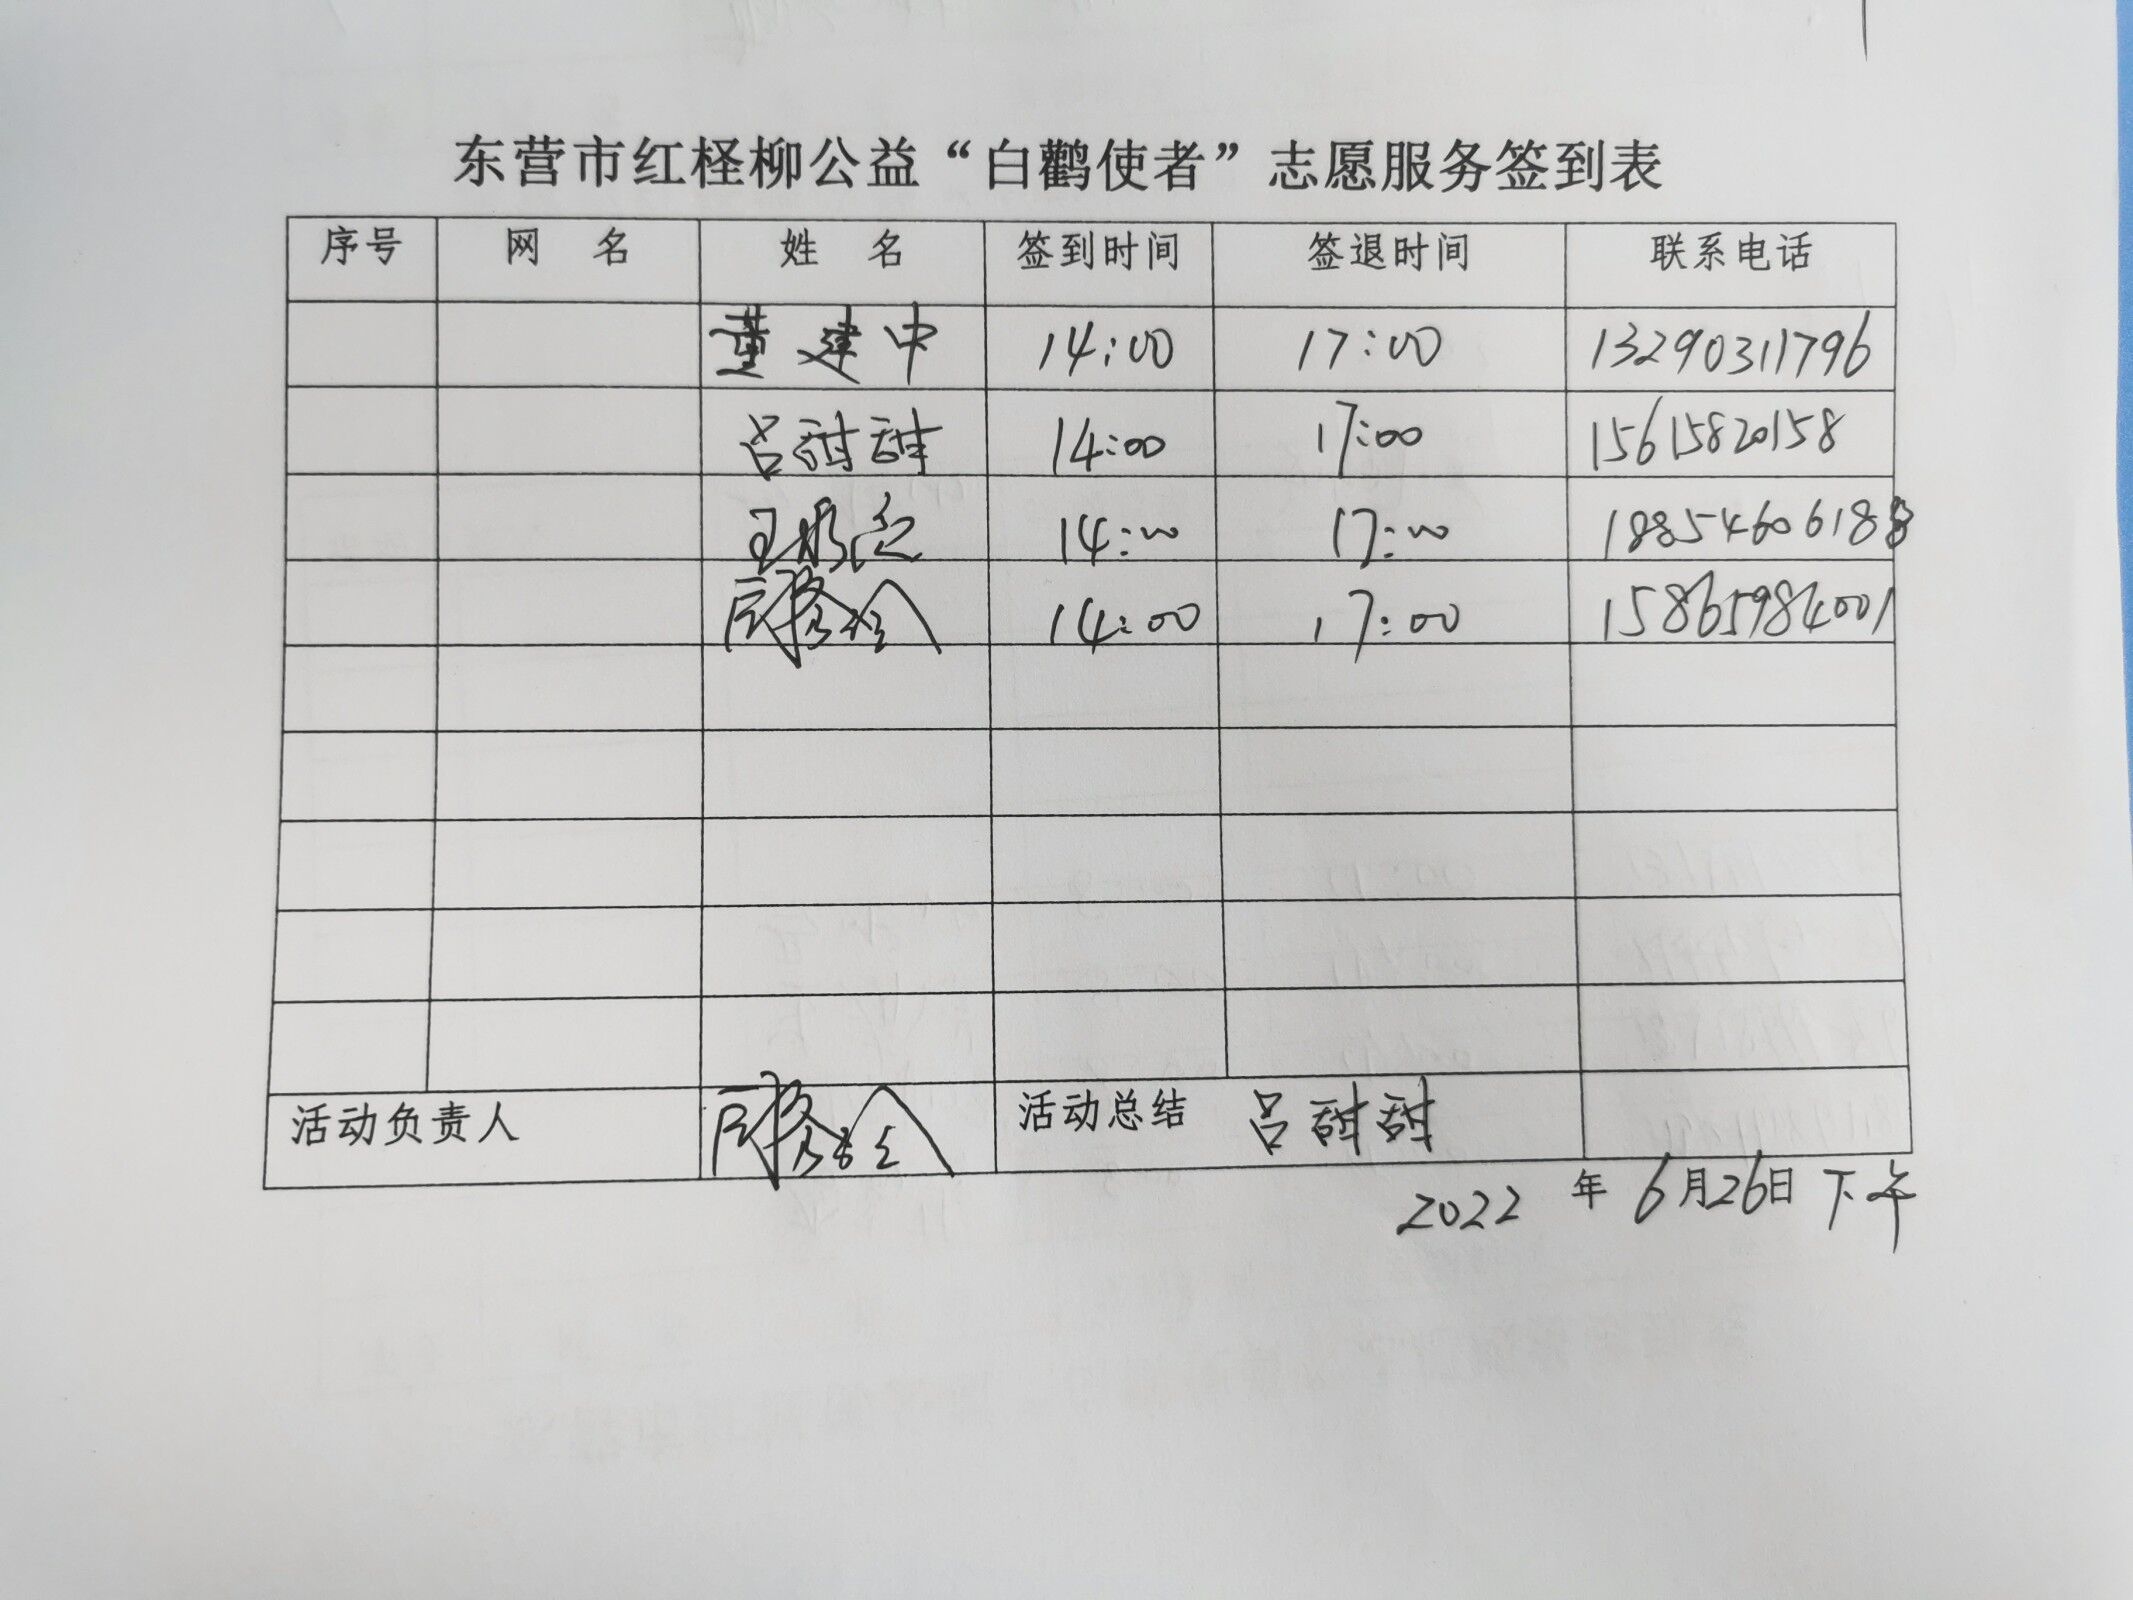 东营市红柽柳公益“白鹳使者”志愿服务签到表
序号 网 名 姓 名 签到时间 签退时间 联系电话
董建中 14:00 17:00 13290311796
吕甜甜 14:00 17:00 15615820158
14:00 17:00 18854606188
14:00 17:00 15865984001
活动负责人 活动总结 吕甜甜
2022 年 6月26日 下午